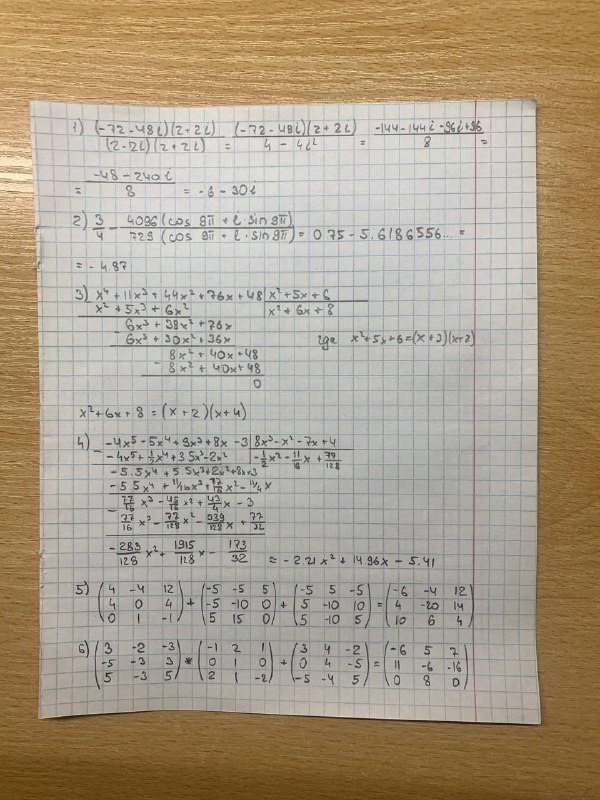 1) (-72-48i)(2+2i) / (2-2i)(2+2i) = (-72-48i)(2+2i) / 4-4i² = -144-144i-96i+96 / 8 =
= -48-240i / 8 = -6-30i
2) 3/4 - 4096(cos 9π + i·sin 9π) / 729(cos 9π + i·sin 9π) = 0.75-5.6186556... =
= -4.87
3) x⁴+11x³+44x²+76x+48 | x²+5x+6
x²+5x³+6x² | x²+6x+8
6x³+38x²+76x
6x³+30x²+36x где x²+5x+6=(x+3)(x+2)
- 8x²+40x+48
8x²+40x+48
0
x²+6x+8=(x+2)(x+4)
4) - -4x⁵-5x⁴+9x³+8x-3 | 8x³-x²-7x+4
-4x⁵+1/2x⁴+3.5x³-2x² | -1/2x²-11/16x+77/128
-5.5x⁴+5.5x³+2x²+8x+3
-5.5x⁴+11/16x³+77/16x²-11/4x
- 77/16x³-45/16x²+43/4x-3
77/16x³-77/128x²-539/128x+77/32
-283/128x²+1915/128x-173/32 ≈ -2.21x²+14.96x-5.41
5) (4 -4 12) (-5 -5 5) (-5 5 -5) (-6 -4 12)
(4 0 4) + (-5 -10 0) + (5 -10 10) = (4 -20 14)
(0 1 -1) (5 15 0) (5 -10 5) (10 6 4)
6) (3 -2 -3) (-1 2 1) (3 4 -2) (-6 5 7)
(-5 -3 3) * (0 1 0) + (0 4 -5) = (11 -6 -16)
(5 -3 5) (2 1 -2) (-5 -4 5) (0 8 0)